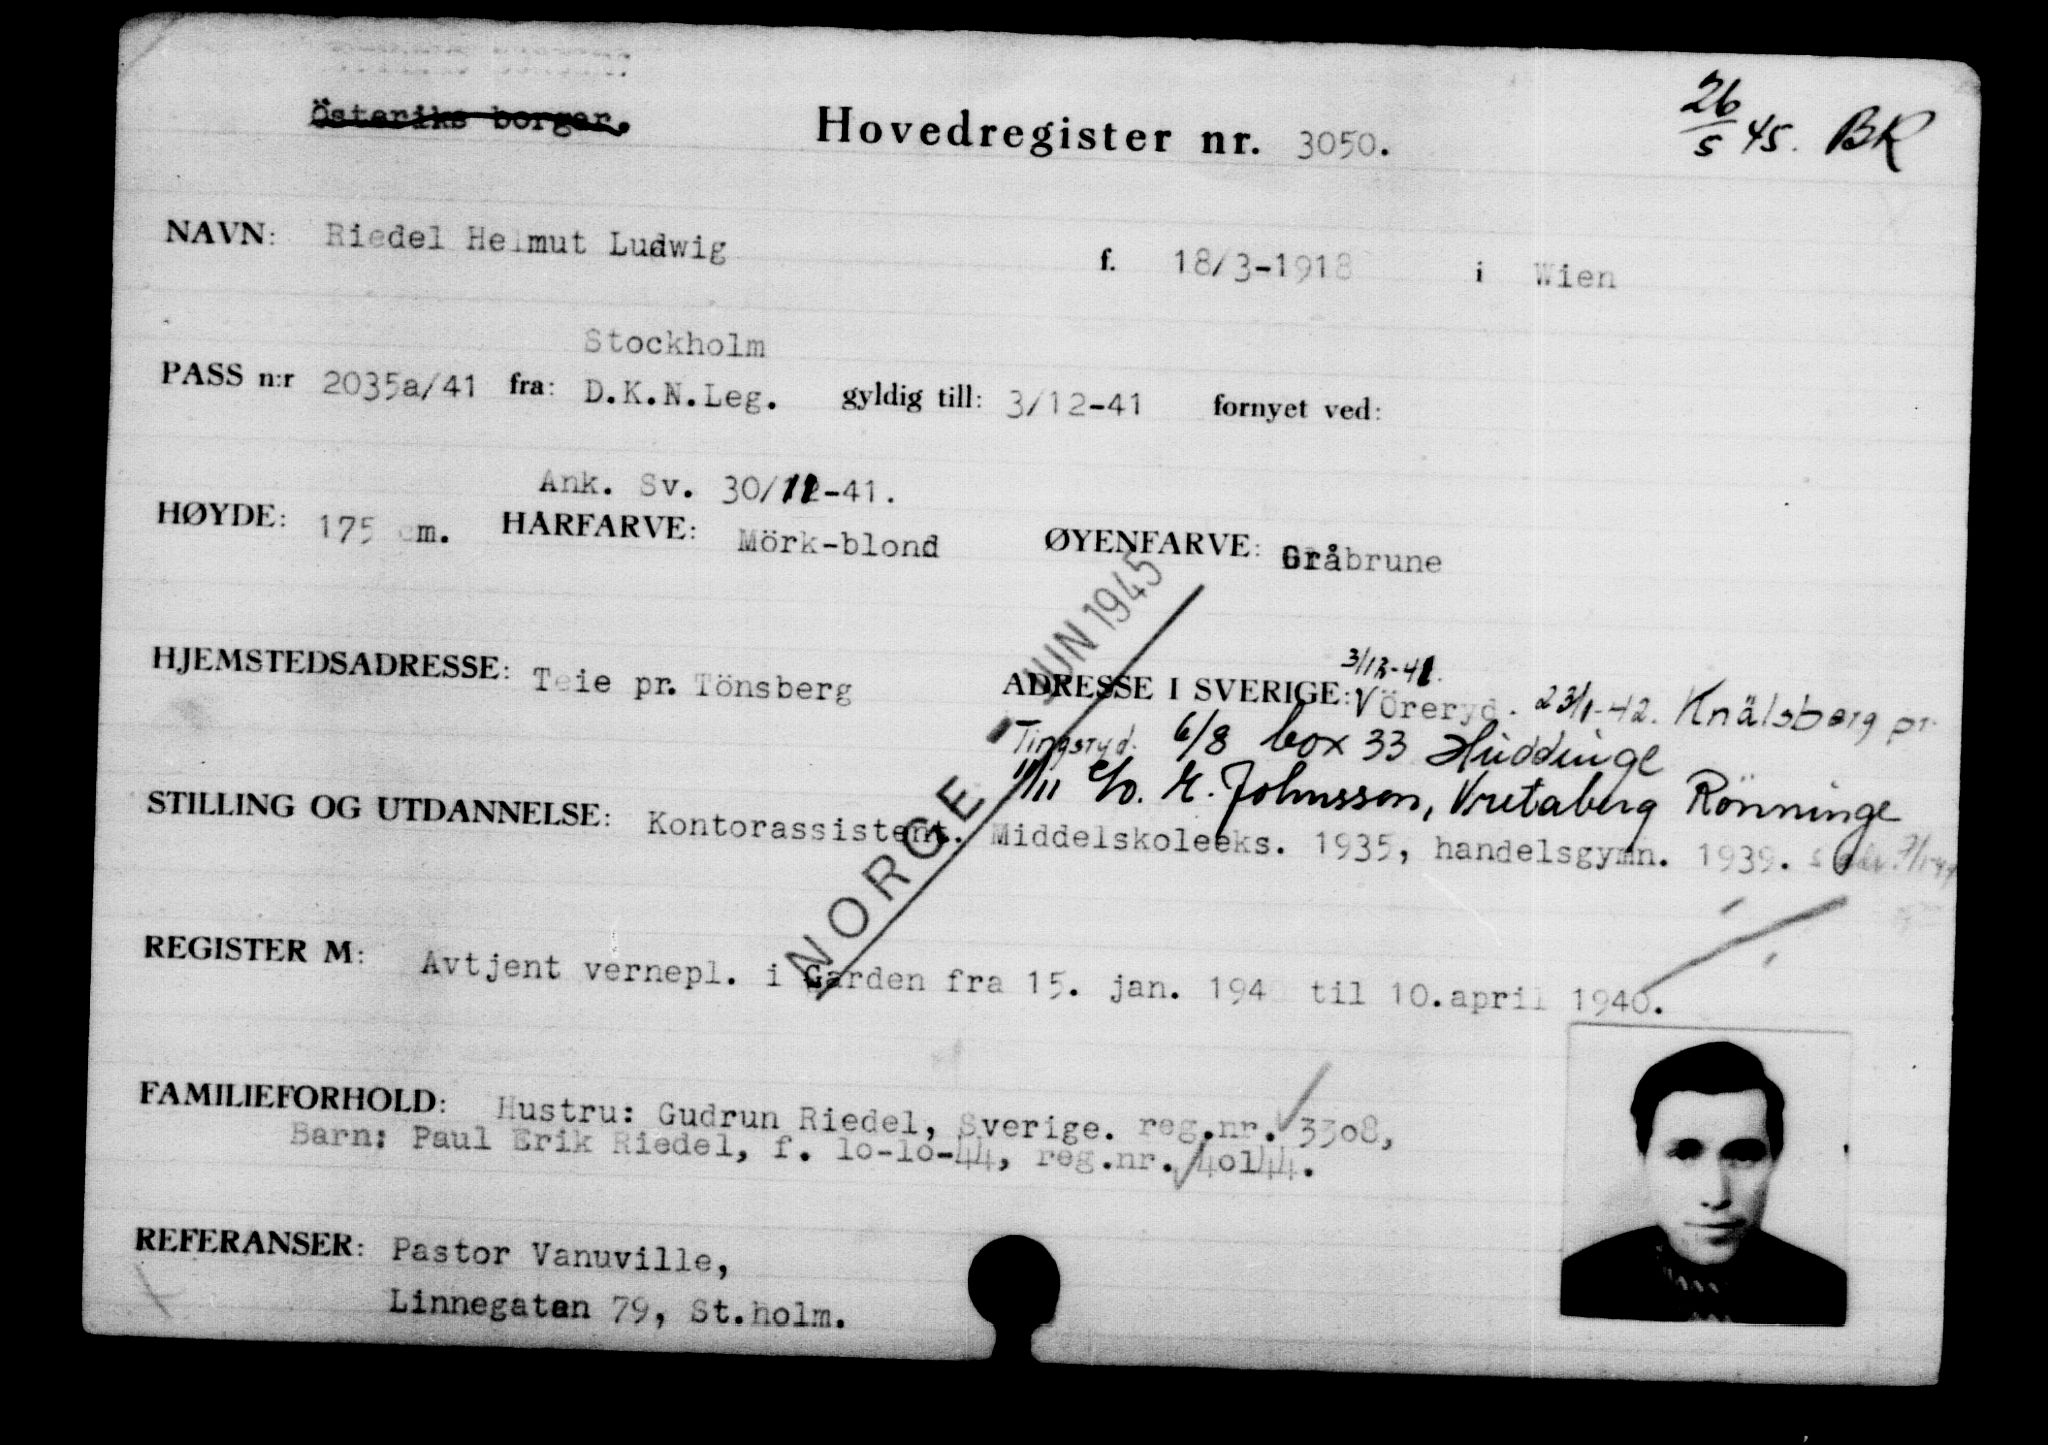 Österiks borger.
Hovedregister nr. 3050.
26/5 45. BR
NAVN: Riedel Helmut Ludwig f. 18/3-1918 i Wien
Stockholm
PASS n:r 2035a/41 fra: D.K.N.Leg. gyldig till: 3/12-41 fornyet ved:
Ank. Sv. 30/11-41.
HØYDE: 175 cm. HÅRFARVE: Mörk-blond ØYENFARVE: Gråbrune
JUN 1945
3/12-41.
HJEMSTEDSADRESSE: Teie pr. Tönsberg ADRESSE I SVERIGE: Öreryd. 23/1-42. Knälsberg pr
Tingsryd. 6/8 box 33 Huddinge
11/11 c/o. E. Johnsson, Vretaberg Rönninge
STILLING OG UTDANNELSE: Kontorassistent. Middelskoleeks. 1935, handelsgymn. 1939.
NORGE
REGISTER M: Avtjent vernepl. i Garden fra 15. jan. 194 til 10.april 1940.
FAMILIEFORHOLD: Hustru: Gudrun Riedel, Sverige. reg.nr. 3308,
Barn: Paul Erik Riedel, f. 10-10-44, reg.nr. 40144.
REFERANSER: Pastor Vanuville,
Linnegatan 79, St.holm.